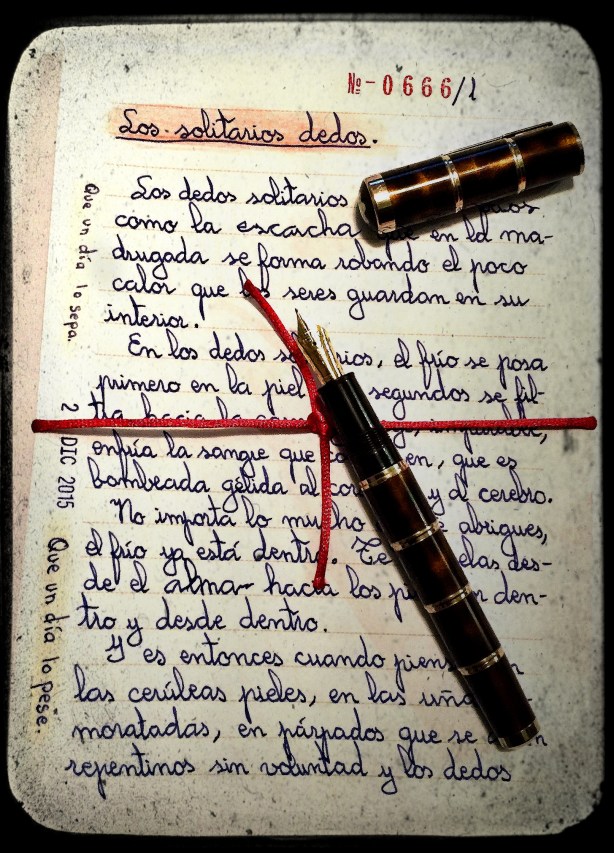 Nº-0666/1
Los solitarios dedos.
Los dedos solitarios
como la escarcha que en la ma-
drugada se forma robando el poco
calor que los seres guardan en su
interior.
En los dedos so rios, el frío se posa
primero en la piel segundos se fil-
tra hacia la
enfría la sangre que en, que es
bombeada gélida al cor y al cerebro.
No importa lo mucho e abrigues,
el frío ya está dentro. Te elas des-
de el alma hacia los p n den-
tro y desde dentro.
Y es entonces cuando piens n
las cerúleas pieles, en las uña
moratadas, en párpados que se n
repentinos sin voluntad y los dedos
Que un día lo sepa.
2 DIC 2015
Que un día lo pese.